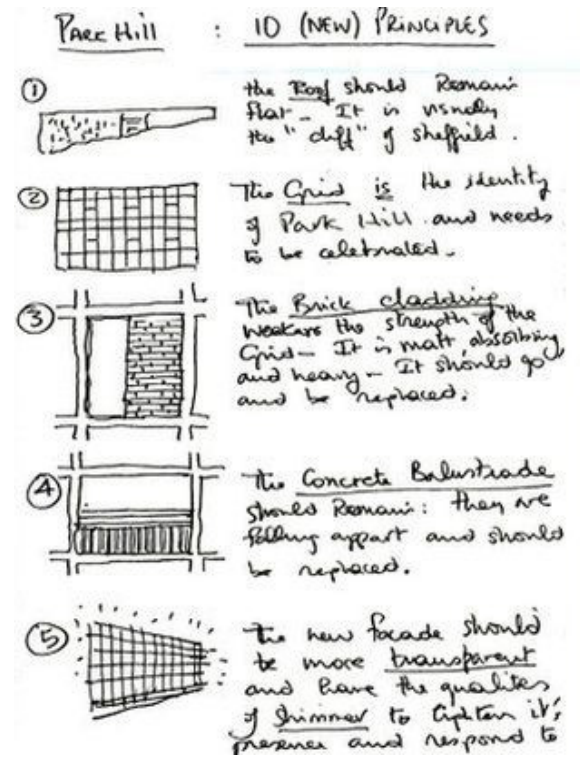 PARK HILL : 10 (NEW) PRINCIPLES
1
the Roof should Remain
flat - It is visually
the "cliff" of sheffield.
2
The Grid is the identity
of Park Hill and needs
to be celebrated.
3
The Brick cladding
weakens the strength of the
Grid - It is matt, absorbing
and heavy - It should go
and be replaced.
4
The Concrete Balustrade
should Remain: they are
falling appart and should
be replaced.
5
The new facade should
be more transparent
and have the qualities
of shimmer to lighten it's
presence and respond to